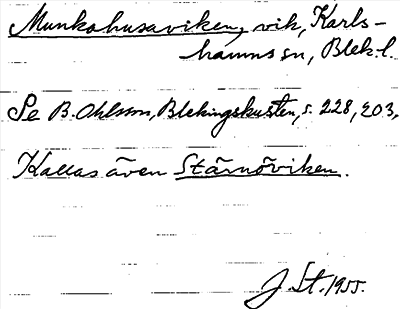 Munkahusaviken, vik, Karls-
hamns sn, Blek. l.
Se B. Ohlsson, Blekingskusten, s. 228, 203,
Kallas även Stärnöviken.
J. St. 1955.